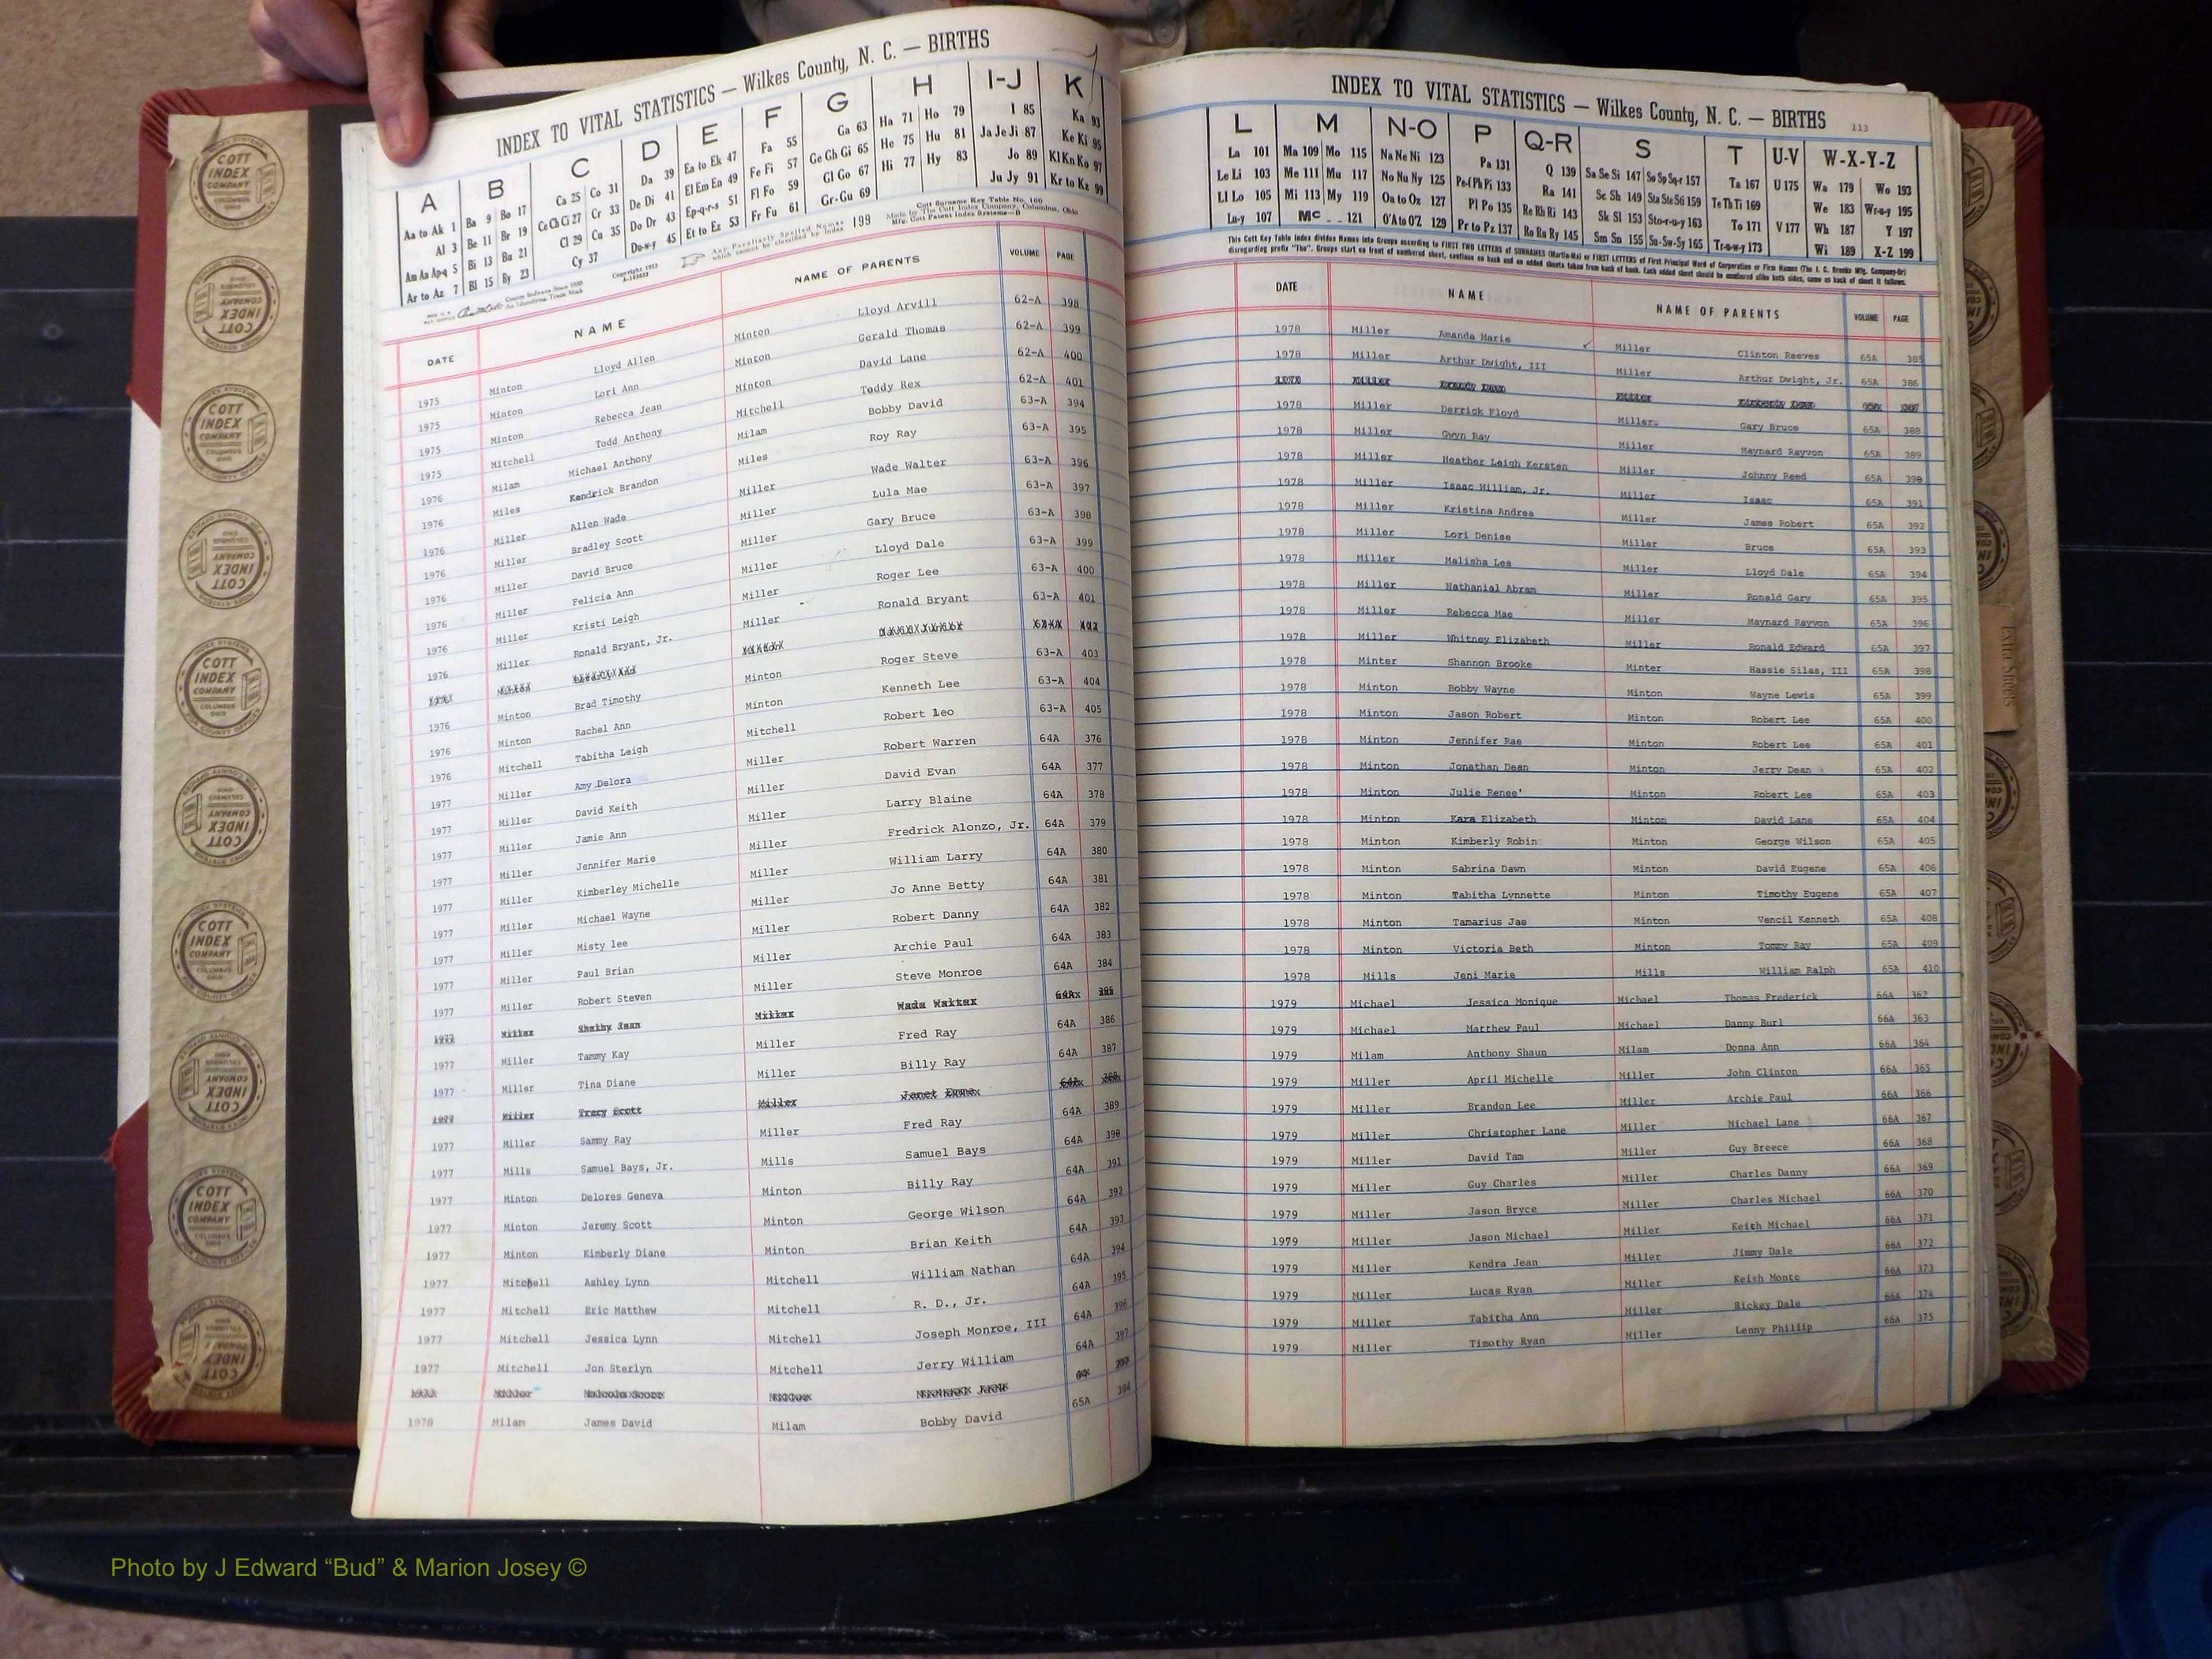 INDEX TO VITAL STATISTICS — Wilkes County, N. C. — BIRTHS
A B C D E F G H I-J K
Aa to Ak 1 Ba 9 Bo 17 Ca 25 Co 31 Da 39 Ea to Ek 47 Fa 55 Ga 63 Ha 71 Ho 79 I 85 Ka 93
Al 3 Be 11 Br 19 Ce Ch Ci 27 Cr 33 De Di 41 El Em En 49 Fe Fi 57 Ge Gh Gi 65 He 75 Hu 81 Ja Je Ji 87 Ke Ki 95
Am An Ap-q 5 Bi 13 Bu 21 Cl 29 Cu 35 Do Dr 43 Ep-q-r-s 51 Fl Fo 59 Gl Go 67 Hi 77 Hy 83 Jo 89 Kl Kn Ko 97
Ar to Az 7 Bl 15 By 23 Cy 37 Du-w-y 45 Et to Ez 53 Fr Fu 61 Gr-Gu 69 Ju Jy 91 Kr to Kz 99
Any Peculiarly Spelled Names which cannot be classified by Index 199
Cott Surname Key Table No. 100
Made by The Cott Index Company, Columbus, Ohio
DATE NAME NAME OF PARENTS VOLUME PAGE
1975 Minton Lloyd Allen Minton Lloyd Arvill 62-A 398
1975 Minton Lori Ann Minton Gerald Thomas 62-A 399
1975 Minton Rebecca Jean Minton David Lane 62-A 400
1975 Mitchell Todd Anthony Mitchell Teddy Rex 62-A 401
1976 Milam Michael Anthony Milam Bobby David 63-A 394
1976 Miles Kendrick Brandon Miles Roy Ray 63-A 395
1976 Miller Allen Wade Miller Wade Walter 63-A 396
1976 Miller Bradley Scott Miller Lula Mae 63-A 397
1976 Miller David Bruce Miller Gary Bruce 63-A 398
1976 Miller Felicia Ann Miller Lloyd Dale 63-A 399
1976 Miller Kristi Leigh Miller Roger Lee 63-A 400
1976 Miller Ronald Bryant, Jr. Miller Ronald Bryant 63-A 401
Minton
1976 Minton Brad Timothy Minton Roger Steve 63-A 403
1976 Minton Rachel Ann Minton Kenneth Lee 63-A 404
1976 Mitchell Tabitha Leigh Mitchell Robert Leo 63-A 405
1977 Miller Amy Delora Miller Robert Warren 64A 376
1977 Miller David Keith Miller David Evan 64A 377
1977 Miller Jamie Ann Miller Larry Blaine 64A 378
1977 Miller Jennifer Marie Miller Fredrick Alonzo, Jr. 64A 379
1977 Miller Kimberley Michelle Miller William Larry 64A 380
1977 Miller Michael Wayne Miller Jo Anne Betty 64A 381
1977 Miller Misty lee Miller Robert Danny 64A 382
1977 Miller Paul Brian Miller Archie Paul 64A 383
1977 Miller Robert Steven Miller Steve Monroe 64A 384
1977 Miller Miller 385
1977 Miller Tammy Kay Miller Fred Ray 64A 386
1977 Miller Tina Diane Miller Billy Ray 64A 387
1977 Miller Tracy Scott Miller 64A 388
1977 Miller Sammy Ray Miller Fred Ray 64A 389
1977 Mills Samuel Bays, Jr. Mills Samuel Bays 64A 390
1977 Minton Delores Geneva Minton Billy Ray 64A 391
1977 Minton Jeremy Scott Minton George Wilson 64A 392
1977 Minton Kimberly Diane Minton Brian Keith 64A 393
1977 Mitchell Ashley Lynn Mitchell William Nathan 64A 394
1977 Mitchell Eric Matthew Mitchell R. D., Jr. 64A 395
1977 Mitchell Jessica Lynn Mitchell Joseph Monroe, III 64A 396
1977 Mitchell Jon Sterlyn Mitchell Jerry William 64A 397
1978 Milam James David Milam Bobby David 65A 384
INDEX TO VITAL STATISTICS — Wilkes County, N. C. — BIRTHS 113
L M N-O P Q-R S T U-V W-X-Y-Z
La 101 Ma 109 Mo 115 Na Ne Ni 123 Pa 131 Q 139 Sa Se Si 147 So Sp Sq-r 157 Ta 167 U 175 Wa 179 Wo 193
Le Li 103 Me 111 Mu 117 No Nu Ny 125 Pe-f Ph Pi 133 Ra 141 Sc Sh 149 Sta Ste Sti 159 Te Th Ti 169 We 183 Wr-u-y 195
Ll Lo 105 Mi 113 My 119 Oa to Oz 127 Pl Po 135 Re Rh Ri 143 Sk Sl 153 Sto-r-u-y 163 To 171 V 177 Wh 187 Y 197
Lu-y 107 Mc 121 O'A to O'Z 129 Pr to Pz 137 Ro Ru Ry 145 Sm Sn 155 Su-Sw-Sy 165 Tr-u-w-y 173 Wi 189 X-Z 199
This Cott Key Table Index divides Names into Groups according to FIRST TWO LETTERS of SURNAMES (Martin-Ma) or FIRST LETTERS of First Principal Word of Corporation or Firm Names (The J. C. Brooks Mfg. Company-Br)
disregarding prefix "The". Groups start on front of numbered sheet, continue on back and on added sheets taken from back of book. Each added sheet should be numbered alike both sides, same as back of sheet it follows.
DATE NAME NAME OF PARENTS VOLUME PAGE
1978 Miller Amanda Marie Miller Clinton Reeves 65A 385
1978 Miller Arthur Dwight, III Miller Arthur Dwight, Jr. 65A 386
Miller Miller
1978 Miller Derrick Floyd Miller Gary Bruce 65A 388
1978 Miller Gwyn Ray Miller Maynard Rayvon 65A 389
1978 Miller Heather Leigh Kersten Miller Johnny Reed 65A 390
1978 Miller Isaac William, Jr. Miller Isaac 65A 391
1978 Miller Kristina Andrea Miller James Robert 65A 392
1978 Miller Lori Denise Miller Bruce 65A 393
1978 Miller Malisha Lea Miller Lloyd Dale 65A 394
1978 Miller Nathanial Abram Miller Ronald Gary 65A 395
1978 Miller Rebecca Mae Miller Maynard Rayvon 65A 396
1978 Miller Whitney Elizabeth Miller Ronald Edward 65A 397
1978 Minter Shannon Brooke Minter Hassie Silas, III 65A 398
1978 Minton Bobby Wayne Minton Wayne Lewis 65A 399
1978 Minton Jason Robert Minton Robert Lee 65A 400
1978 Minton Jennifer Rae Minton Robert Lee 65A 401
1978 Minton Jonathan Dean Minton Jerry Dean 65A 402
1978 Minton Julie Renee' Minton Robert Lee 65A 403
1978 Minton Kara Elizabeth Minton David Lane 65A 404
1978 Minton Kimberly Robin Minton George Wilson 65A 405
1978 Minton Sabrina Dawn Minton David Eugene 65A 406
1978 Minton Tabitha Lynnette Minton Timothy Eugene 65A 407
1978 Minton Tamarius Jae Minton Vencil Kenneth 65A 408
1978 Minton Victoria Beth Minton Tommy Ray 65A 409
1978 Mills Jeni Marie Mills William Ralph 65A 410
1979 Michael Jessica Monique Michael Thomas Frederick 66A 362
1979 Michael Matthew Paul Michael Danny Burl 66A 363
1979 Milam Anthony Shaun Milam Donna Ann 66A 364
1979 Miller April Michelle Miller John Clinton 66A 365
1979 Miller Brandon Lee Miller Archie Paul 66A 366
1979 Miller Christopher Lane Miller Michael Lane 66A 367
1979 Miller David Tam Miller Guy Breece 66A 368
1979 Miller Guy Charles Miller Charles Danny 66A 369
1979 Miller Jason Bryce Miller Charles Michael 66A 370
1979 Miller Jason Michael Miller Keith Michael 66A 371
1979 Miller Kendra Jean Miller Jimmy Dale 66A 372
1979 Miller Lucas Ryan Miller Keith Monte 66A 373
1979 Miller Tabitha Ann Miller Rickey Dale 66A 374
1979 Miller Timothy Ryan Miller Lenny Phillip 66A 375
Extra Sheets
COTT INDEX COMPANY COLUMBUS OHIO
Photo by J Edward “Bud” & Marion Josey ©